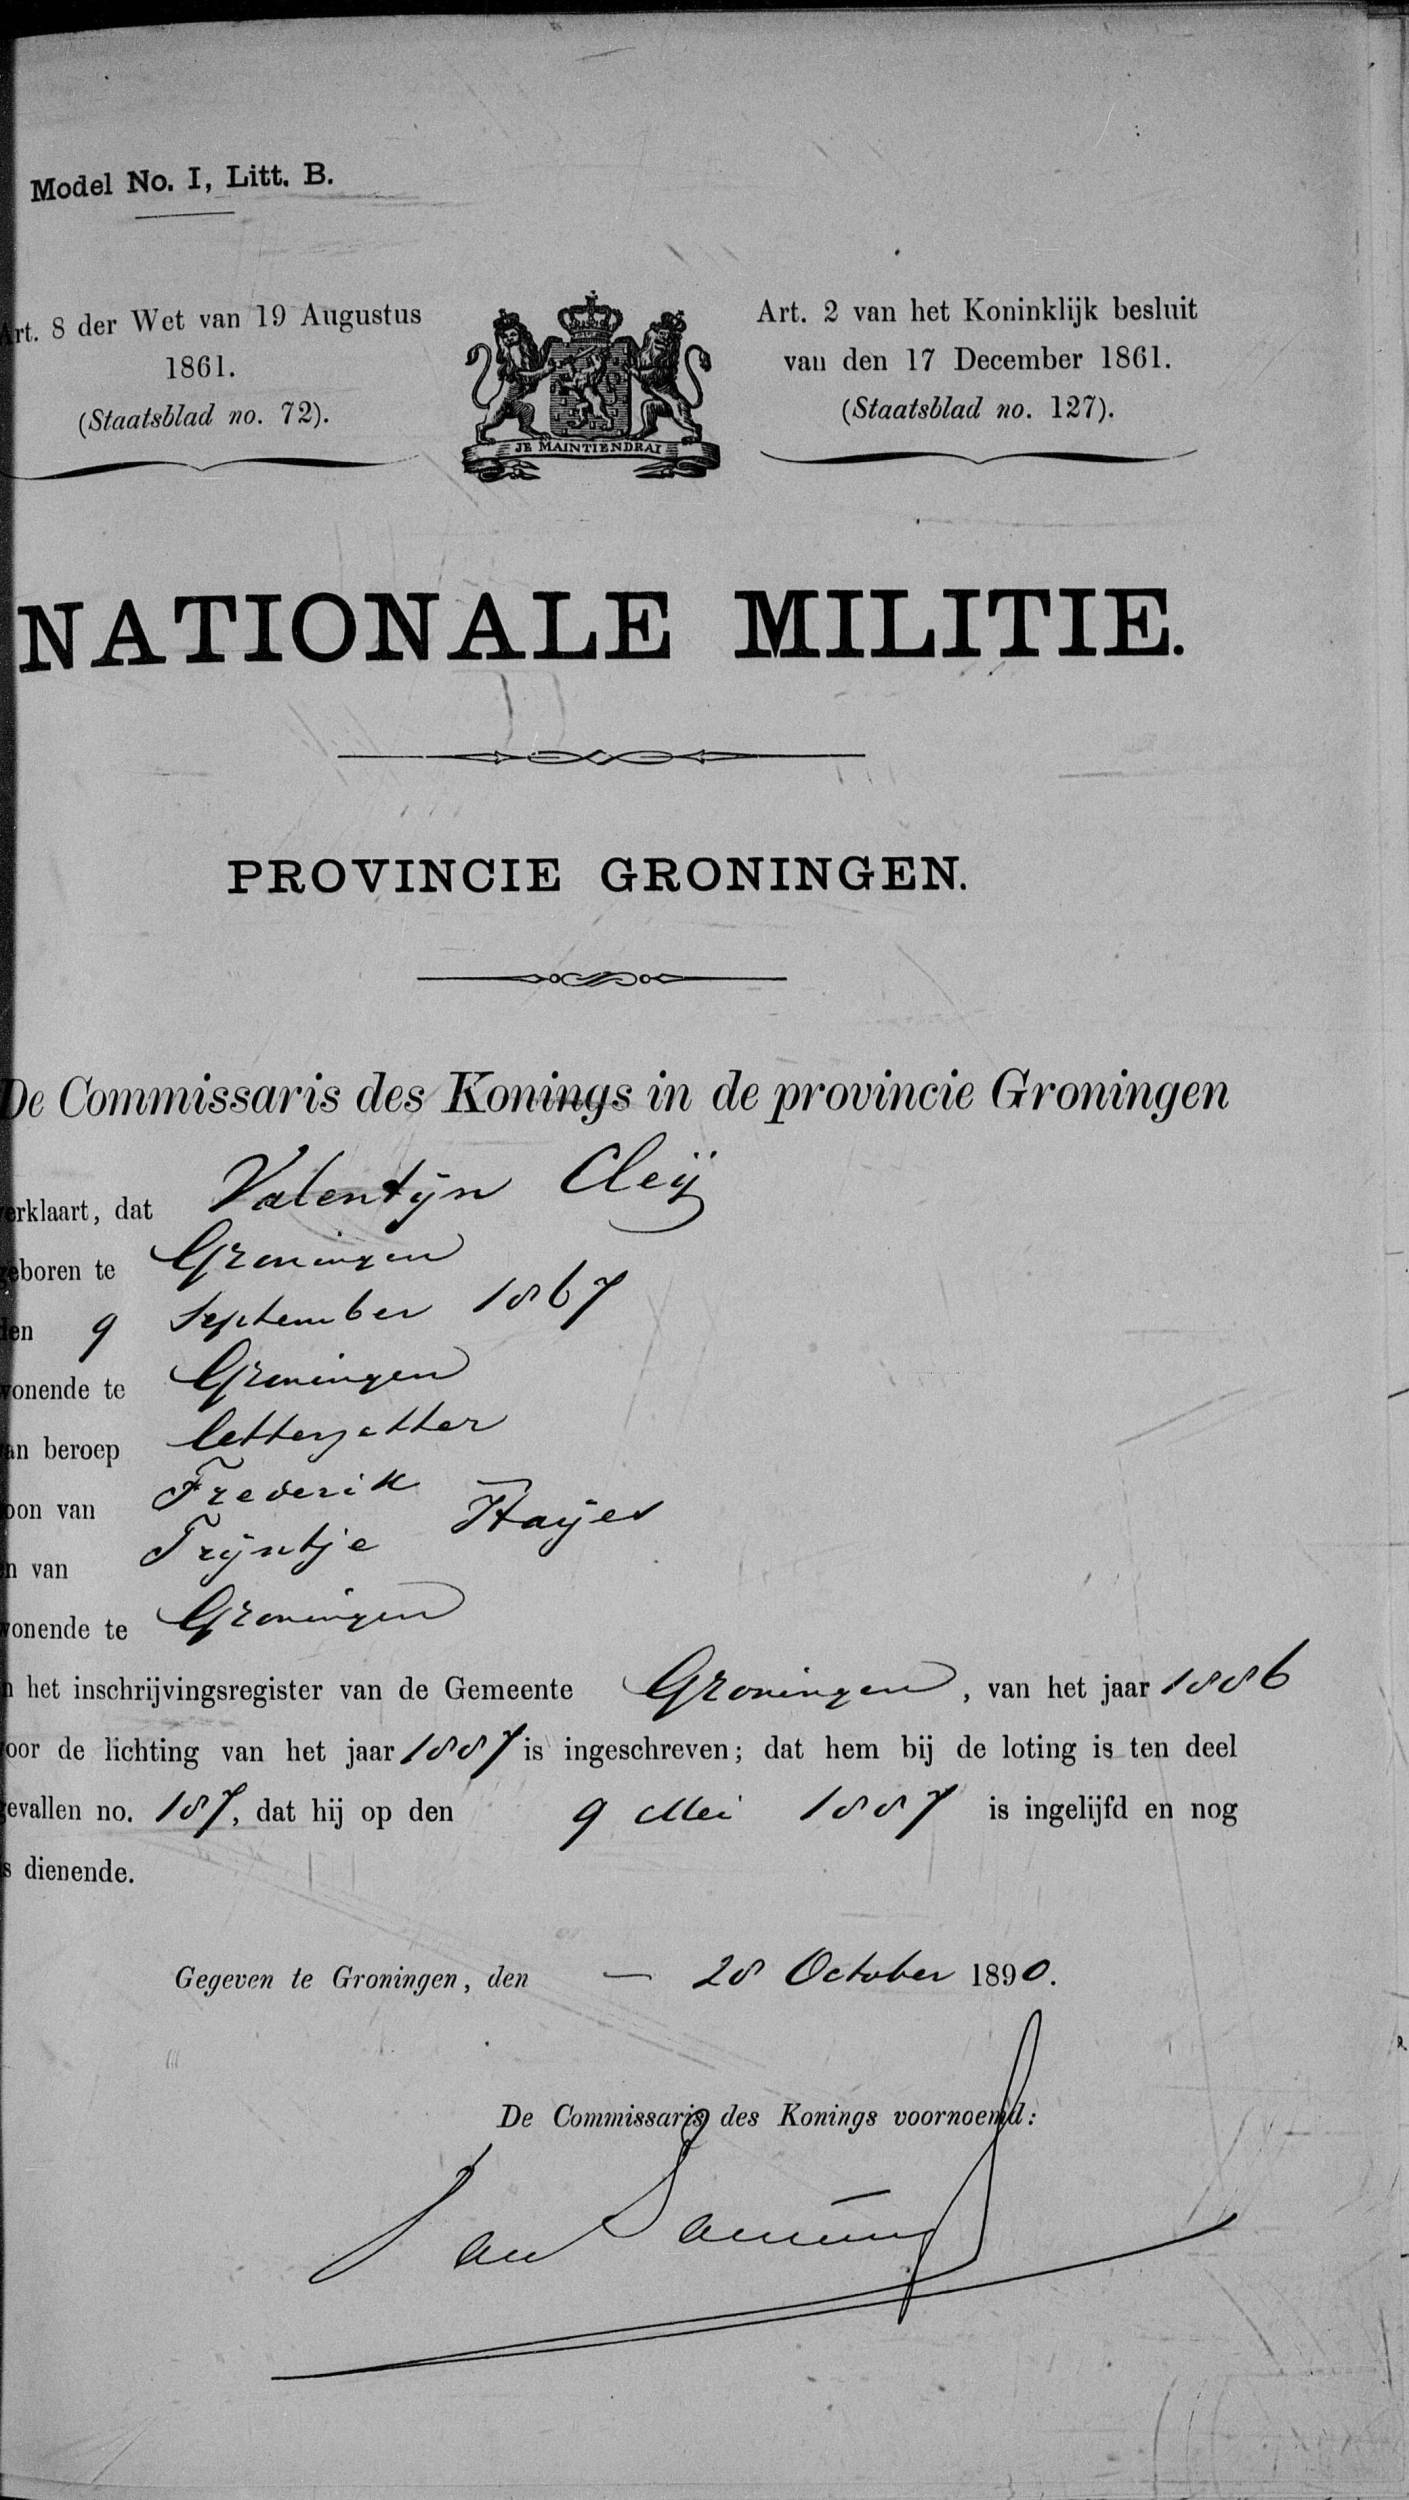 Model No. I, Litt. B.
Art. 8 der Wet van 19 Augustus
1861.
(Staatsblad no. 72).
JE MAINTIENDRAI
Art. 2 van het Koninklijk besluit
van den 17 December 1861.
(Staatsblad no. 127).
NATIONALE MILITIE.
PROVINCIE GRONINGEN.
De Commissaris des Konings in de provincie Groningen
verklaart, dat Valentijn Cleij
geboren te Groningen
den 9 September 1867
wonende te Groningen
van beroep letterzetter
zoon van Frederik
en van Trijntje Haijes
wonende te Groningen
in het inschrijvingsregister van de Gemeente Groningen, van het jaar 1886
voor de lichting van het jaar 1887 is ingeschreven; dat hem bij de loting is ten deel
gevallen no. 187, dat hij op den 9 Mei 1887 is ingelijfd en nog
is dienende.
Gegeven te Groningen, den — 28 October 1890.
De Commissaris des Konings voornoemd: